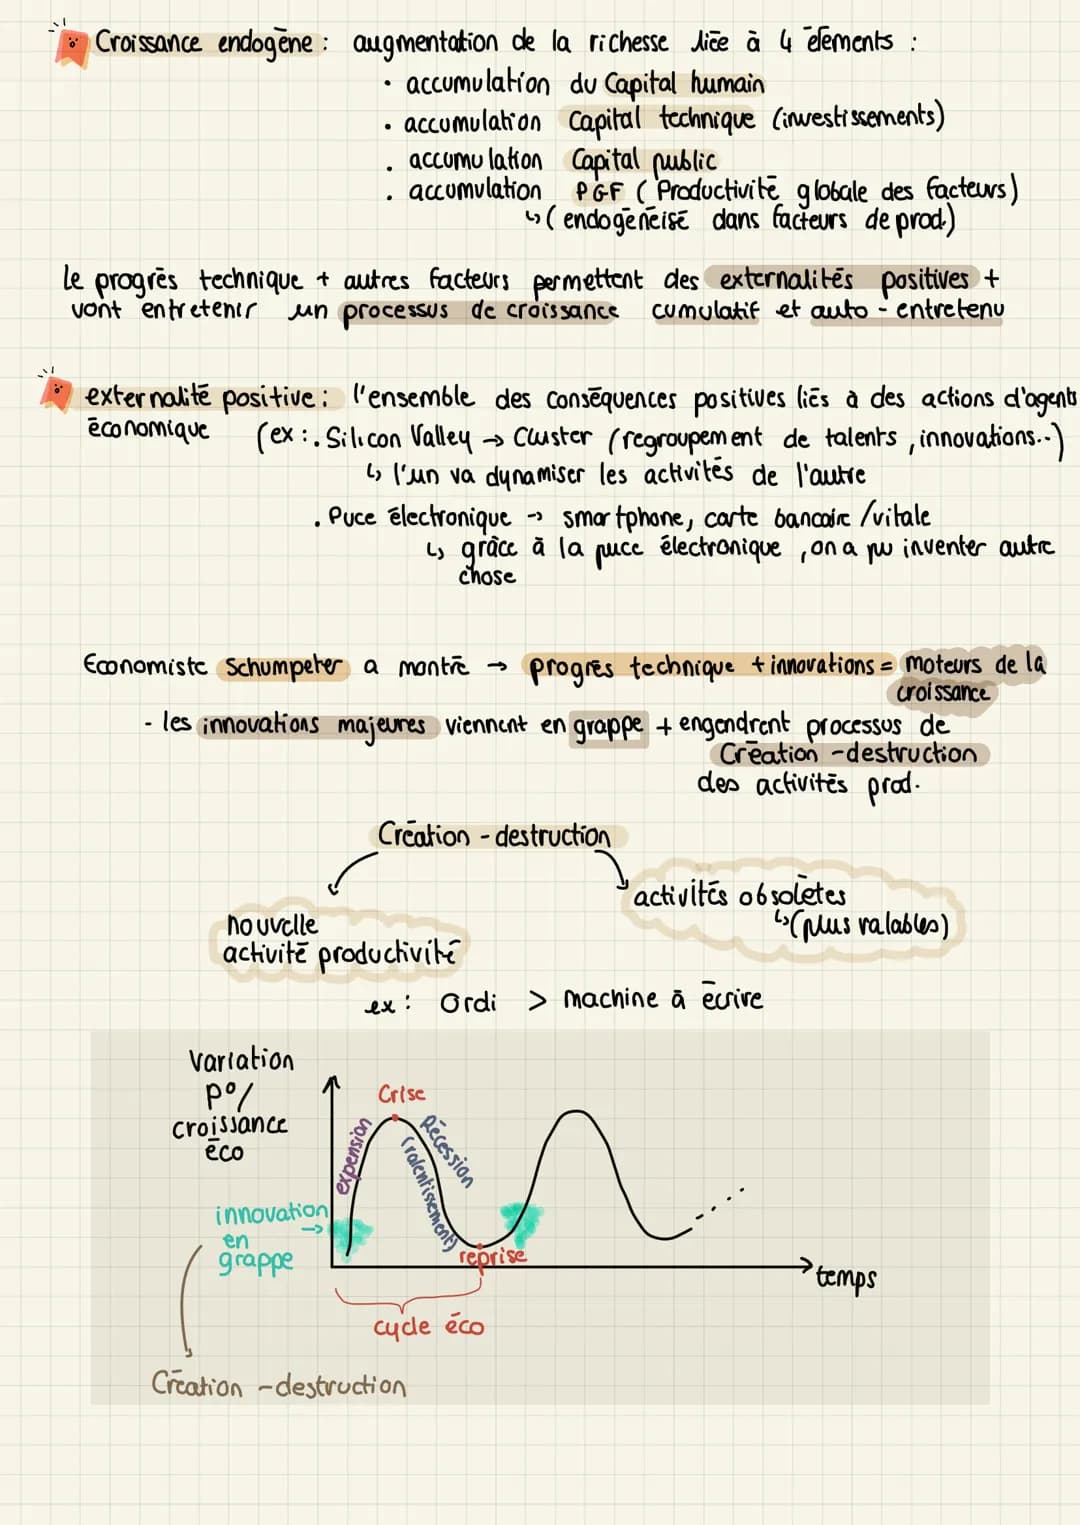 Croissance endogène : augmentation de la richesse liée à 4 éléments :
• accumulation du Capital humain
• accumulation Capital technique (investissements)
• accumulation Capital public
• accumulation PGF (Productivité globale des facteurs)
↳ (endogénéisé dans facteurs de prod.)
Le progrès technique + autres facteurs permettent des externalités positives +
vont entretenir un processus de croissance cumulatif et auto-entretenu
externalité positive : l'ensemble des conséquences positives liés à des actions d'agents
économique (ex : . Silicon Valley → Cluster (regroupement de talents, innovations...)
↳ l'un va dynamiser les activités de l'autre
. Puce électronique → smartphone, carte bancaire / vitale
↳ grâce à la puce électronique, on a pu inventer autre
chose
Economiste Schumpeter a montré → progrès technique + innovations = moteurs de la
croissance
- les innovations majeures viennent en grappe + engendrent processus de
Création - destruction
des activités prod.
Création - destruction
activités obsolètes
↳ (plus valables)
nouvelle
activité productivité
ex : Ordi > machine à écrire
Variation
P°/
croissance
éco
Crise
expension
Récession
(ralentissement)
innovation →
en
grappe
reprise
temps
cycle éco
Création - destruction